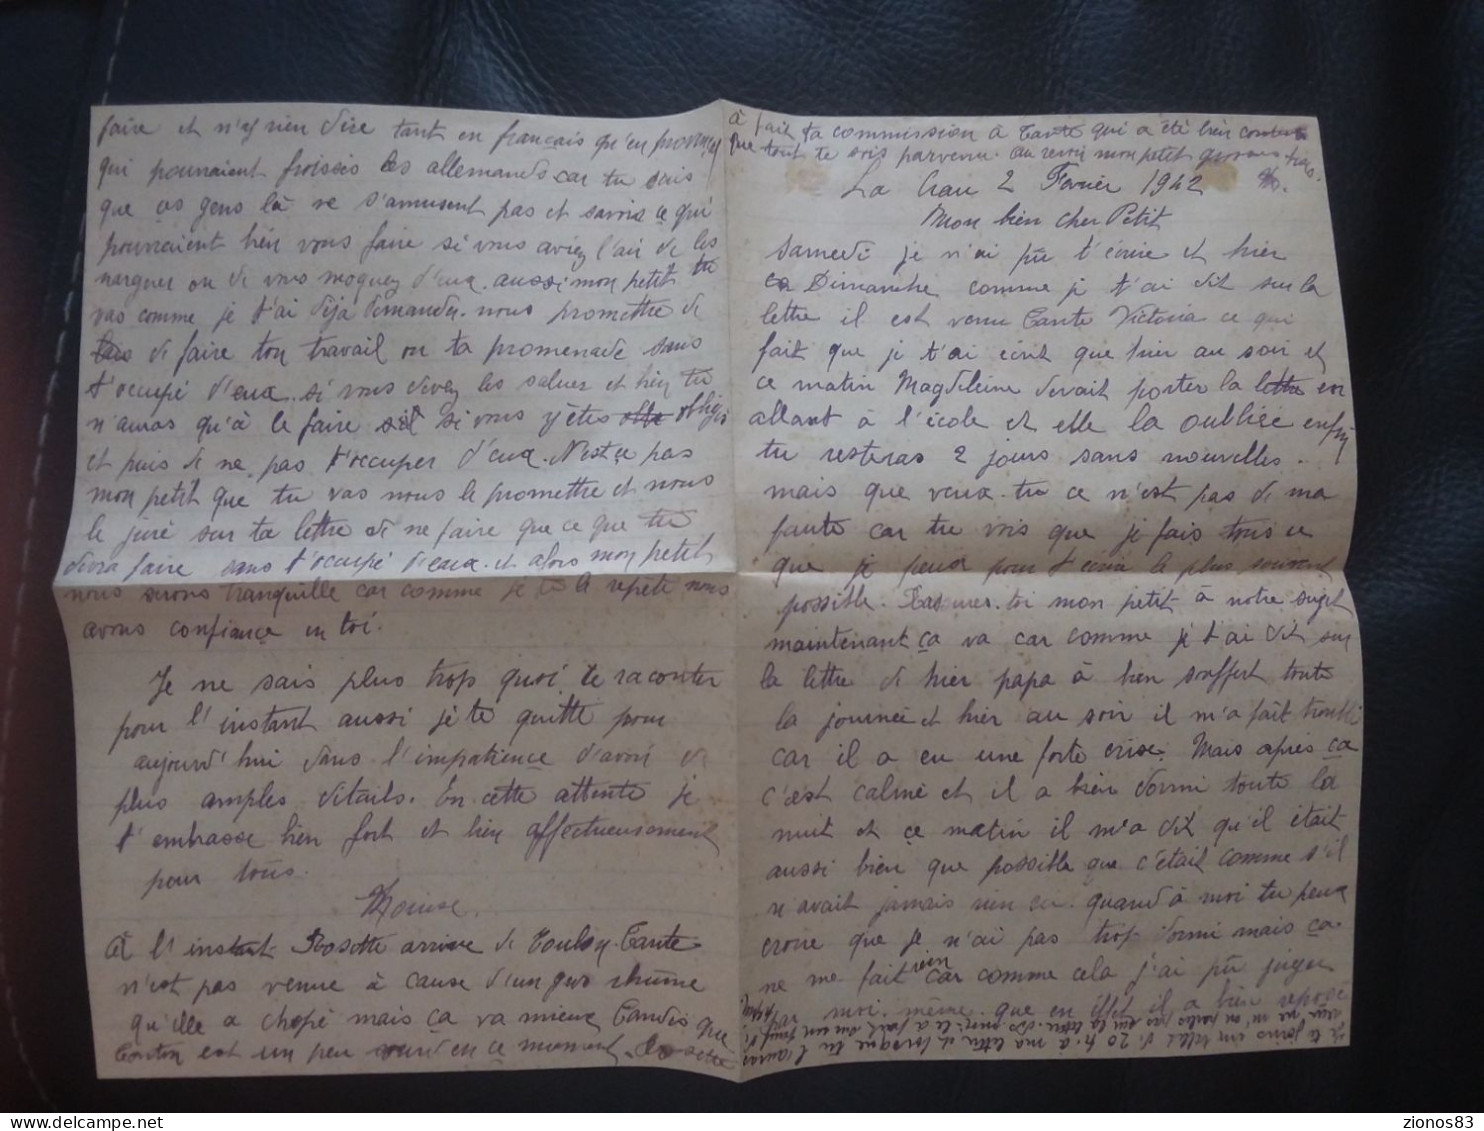 La Crau 2 Fevrier 1942
Mon bien cher Petit
samedi je n'ai pû t'écrire et hier
Dimanche comme je t'ai dit sur la
lettre il est venu Tante Victoria ce qui
fait que je t'ai écrit que hier au soir et
ce matin Magdeleine devait porter la lettre en
allant à l'école et elle la oubliée enfin
tu resteras 2 jours sans nouvelles.
mais que veux-tu ce n'est pas de ma
faute car tu vois que je fais tous ce
que je peux pour t'écrire le plus souvent
possible. Rassures-toi mon petit à notre sujet
maintenant ça va car comme je t'ai dit sur
la lettre de hier papa à bien souffert toute
la journée et hier au soir il m'a fait
car il a eu une forte crise. Mais après ça
c'est calmé et il a bien dormi toute la
nuit et ce matin il m'a dit qu'il était
aussi bien que possible que c'était comme s'il
n'avait jamais rien eu. quand à moi tu peux
croire que je n'ai pas trop dormi mais ça
ne me fait rien car comme cela j'ai pû juger
moi-même que en effet il a bien reposé
je te joins un billet de 20 f. à ma lettre et lorsque tu l'auras
faire et n'ey rien dire tant en français qu'en provençal
qui pourraient froissés les allemands car tu sais
que ces gens là ne s'amusent pas et savoir ce qui
pourraient bien vous faire si vous aviez l'air de les
narguer ou de vous moquez d'eux. aussi mon petit tu
vas comme je t'ai déja demandu. nous promettre de
de faire ton travail ou ta promenade sans
t'occupé d'eux. si vous devez les saluer et bien tu
n'auras qu'à le faire si vous y êtes obligés
et puis de ne pas t'occuper d'eux. N'est ce pas
mon petit que tu vas nous le promettre et nous
le juré sur ta lettre de ne faire que ce que tu
devra faire sans t'occupé d'eux. et alors mon petit
nous serons tranquille car comme je te la repète nous
avons confiance en toi.
Je ne sais plus trop quoi te raconter
pour l'instant aussi je te quitte pour
aujourd'hui dans l'impatience d'avoir de
plus amples détails. En cette attente je
t'embrasse bien fort et bien affectueusement
pour tous.
A l'instant Rosette arrive de Toulon. Tante
n'est pas venue à cause d'un gros rhûme
qu'elle a chopé mais ça va mieux Tandis que
Tonton est un peu sourd en ce moment. Rosette
à fait ta commission à Tante qui a été bien contente
que tout te sois parvenu. au revoir mon petit